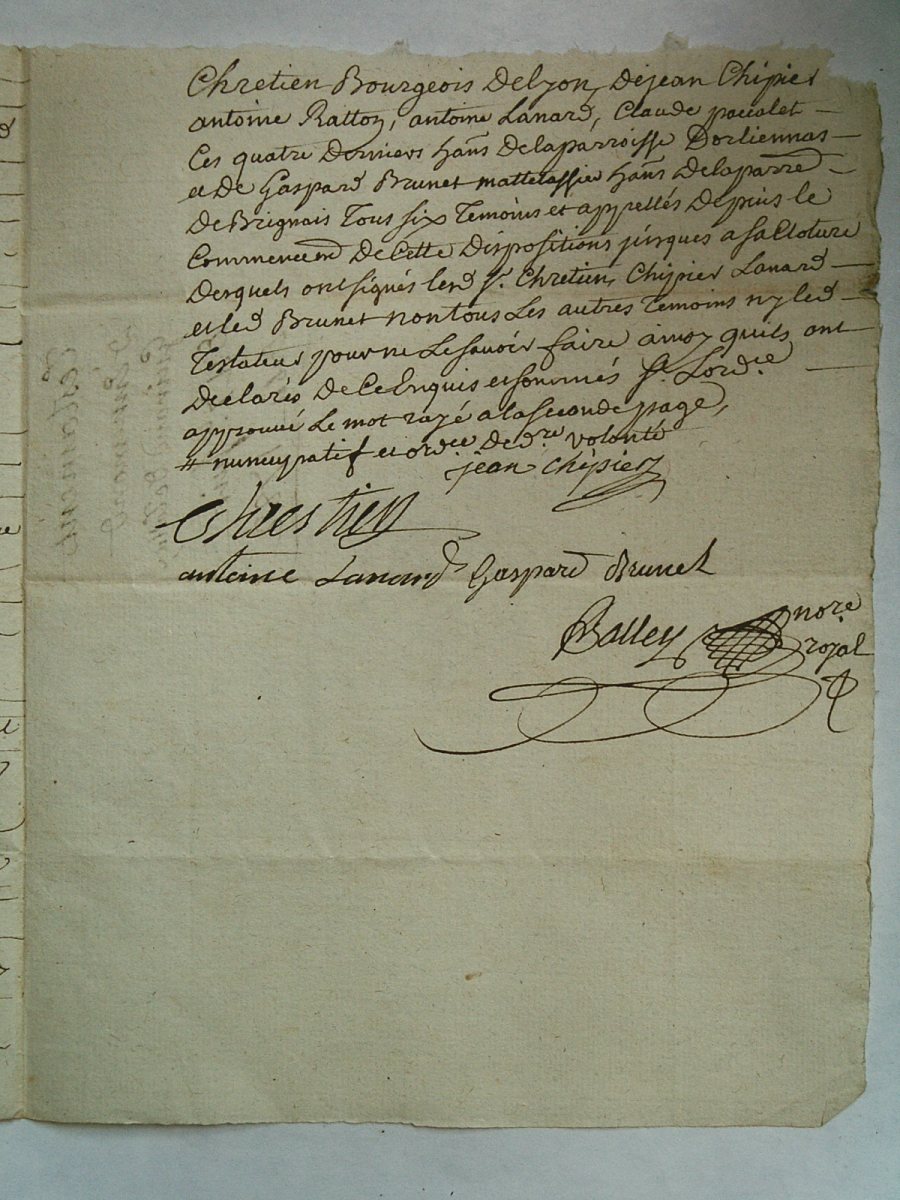 Chretien Bourgeois Delyon, Dejean Chipier
antoine Ratton, antoine Lanard, Claude
Ces quatre Derniers hãns Delaparroisse Dorliennas
et de Gaspard Brunet mattelassier hãns Delaparre
de Brignais Tous six Temoins et appellés Depuis le
Commencem De Cette Dispositions jusques a sa Cloture
Desquels ont signés led Sr. Chretien, Chipier Lanard
et led Brunet non tous Les autres Temoins ny led
Testateur pour ne Le savoir faire a moy quils ont
Declaré De Ce Enquis et sommés Sr. Lord.ce
approuvé Le mot rayé a la seconde page,
# nuncupatif et ord.ce de d.re volonté
jean chipier
Chrestien
antoine Lanard Gaspard Brunet
Balley nore
royal